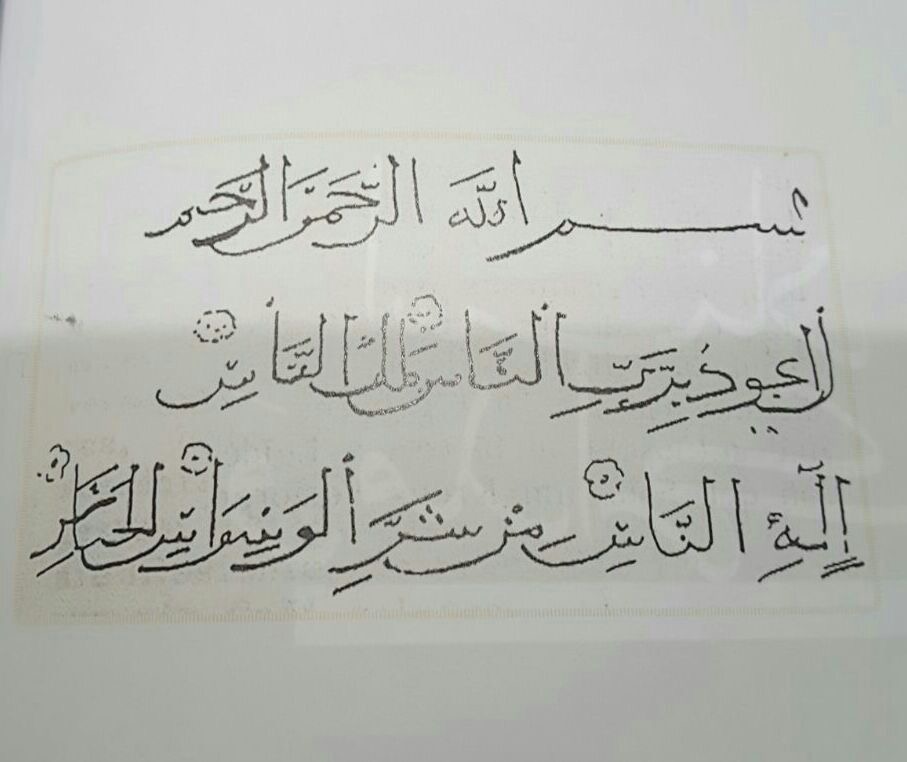 بسم الله الرحمن الرحيم
أعوذ بربّ الناس ملك الناس
إله الناس من شرّ الوسواس الخناس